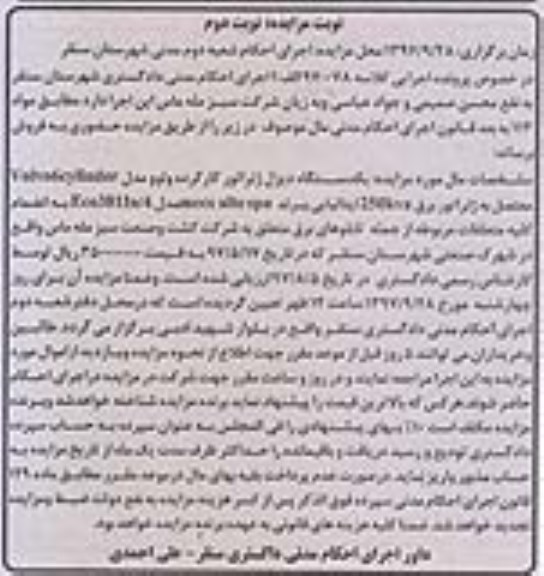 نوبت مزایده: نوبت دوم
زمان برگزاری: ۱۳۹۷/۹/۲۸ محل مزایده: اجرای احکام شعبه دوم مدنی شهرستان سقز
در خصوص پرونده اجرایی کلاسه اجرای احکام مدنی دادگستری شهرستان سقز
به نفع محسن صمیمی و جواد عباسی و به زیان شرکت سبز مله ماس این اجرا دارد مطابق مواد
به بعد قانون اجرای احکام مدنی مال موصوف در زیر را از طریق مزایده حضوری به فروش
برساند:
مشخصات مال مورد مزایده: یک دستگاه دیزل ژنراتور کارکرده ولوو مدل
متصل به ژنراتور برق 250kva ایتالیایی برند mecc alte spa مدل به انضمام
کلیه متعلقات مربوطه از جمله تابلوهای برق متعلق به شرکت کشت وصنعت سبز مله ماس واقع
در شهرک صنعتی شهرستان سقز که در تاریخ ۹۷/۵/۱۷ به قیمت ریال توسط
کارشناس رسمی دادگستری در تاریخ ۹۷/۸/۵ ارزیابی شده است. وضمنا مزایده آن برای روز
چهارشنبه مورخ ۱۳۹۷/۹/۲۸ ساعت ۱۲ ظهر تعیین گردیده است که در محل دفتر شعبه دوم
اجرای احکام مدنی دادگستری سقز واقع در بلوار شهید ادبی برگزار می گردد. طالبین
وخریداران می توانند ۵ روز قبل از موعد مقرر جهت اطلاع از نحوه مزایده وبازدید از اموال مورد
مزایده به این اجرا مراجعه نمایند و در روز و ساعت مقرر جهت شرکت در مزایده در اجرای احکام
حاضر شوند. هر کس که بالاترین قیمت را پیشنهاد نماید برنده مزایده شناخته خواهد شد وبرنده
مزایده مکلف است ۱۰٪ بهای پیشنهادی را فی المجلس به عنوان سپرده به حساب سپرده
دادگستری تودیع و رسید دریافت و باقیمانده را حداکثر ظرف مدت یک ماه از تاریخ مزایده به
حساب مذکور واریز نماید. در صورت عدم پرداخت بقیه بهای مال در موعد مقرر مطابق ماده ۱۲۹
قانون اجرای احکام مدنی سپرده فوق الذکر پس از کسر هزینه مزایده به نفع دولت ضبط ومزایده
تجدید خواهد شد. ضمنا کلیه هزینه های قانونی به عهده برنده مزایده خواهد بود.
دادورز اجرای احکام مدنی دادگستری سقز - علی احمدی